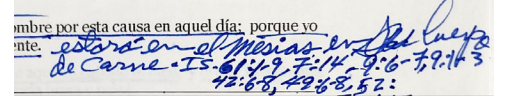 ombre por esta causa en aquel día; porque yo
ente. estará en el Mesias en Su Cuerpo
de Carne. Is. 61:1-9, 7:14, 9:6-7, 9:1-3
42:6-8, 49:6-8, 52: